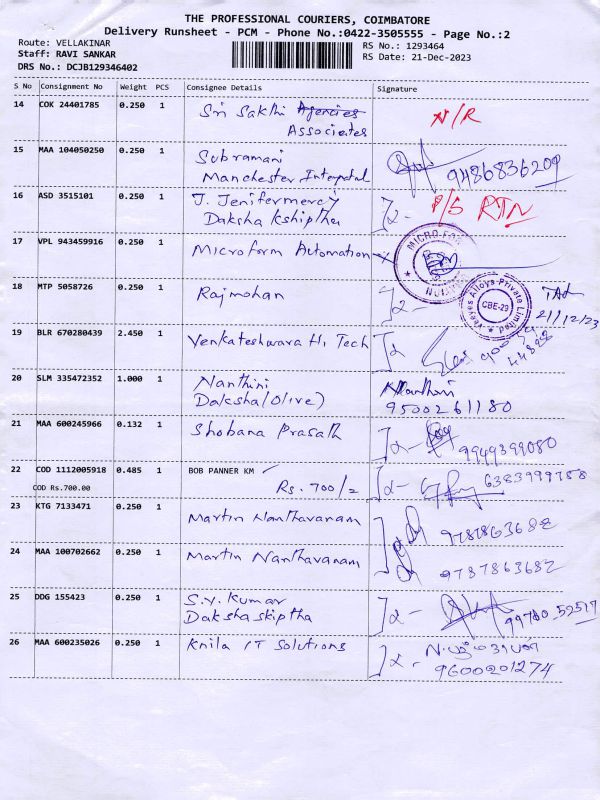 THE PROFESSIONAL COURIERS, COIMBATORE
Delivery Runsheet - PCM - Phone No.:0422-3505555 - Page No.:2
Route: VELLAKINAR
RS No.: 1293464
Staff: RAVI SANKAR
RS Date: 21-Dec-2023
DRS No.: DCJB129346402
S No Consignment No Weight PCS Consignee Details Signature
14 COK 24401785 0.250 1 Sri Sakthi Agencies N/R
Associates
15 MAA 104050250 0.250 1 Subramani
Manchester 9486836209
16 ASD 3515101 0.250 1 J. Jenifermercy P/S RTN
Daksha Kshiptha
17 VPL 943459916 0.250 1 Microform Automation
MICRO-FOR
18 MTP 5058726 0.250 1 Rajmohan
Alloys Private Limited
CBE-29
21/12/23
19 BLR 670280439 2.450 1 Venkateshwara Hi Tech
20 SLM 335472352 1.000 1 Nanthini
Daksha (Olive) 9500261180
21 MAA 600245966 0.132 1 Shobana Prasath 9949399080
22 COD 1112005918 0.485 1 BOB PANNER KM 6383999788
COD Rs.700.00 Rs. 700/=
23 KTG 7133471 0.250 1 Martin Nanthavanam 9787863682
24 MAA 100702662 0.250 1 Martin Nanthavanam 9787863682
25 DDG 155423 0.250 1 S.V. Kumar
Dakshaskiptha 99780_52517
26 MAA 600235026 0.250 1 Knila IT Solutions
9600201274